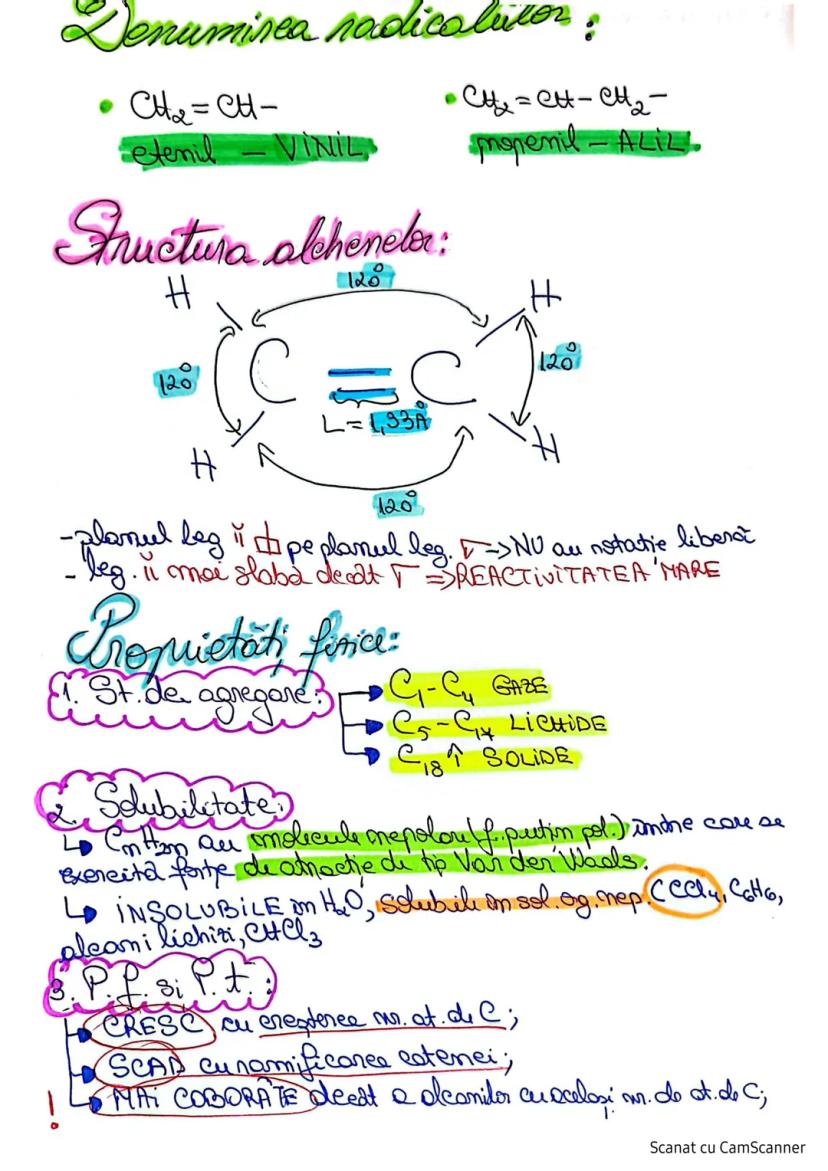 Denumirea radicalilor:
• CH₂ = CH – • CH₂ = CH – CH₂ –
etenil – VINIL propenil – ALIL
Structura alchenelor:
120°
H H
120° C = C 120°
L = 1,33Å
H H
120°
- planul leg π pe planul leg. σ => NU au rotație liberă
- leg. π mai slabă decât σ => REACTIVITATEA MARE
Proprietăți fizice:
1. St. de agregare: C₁ - C₄ GAZE
C₅ - C₁₄ LICHIDE
C₁₈ ↑ SOLIDE
2. Solubilitate:
↳ CnH2n au molecule nepolare (f. puțin pol.) între care se
exercită forțe de atracție de tip Van der Waals.
↳ INSOLUBILE în H₂O, solubile în sol. og. nep. CCl₄, C₆H₆,
alcani lichizi, CHCl₃
3. P.f. si P.t.:
CRESC cu creșterea nr. at. de C;
SCAD cu ramificarea catenei;
! MAI COBORÂTE decât a alcanilor cu același nr. de at. de C;
Scanat cu CamScanner